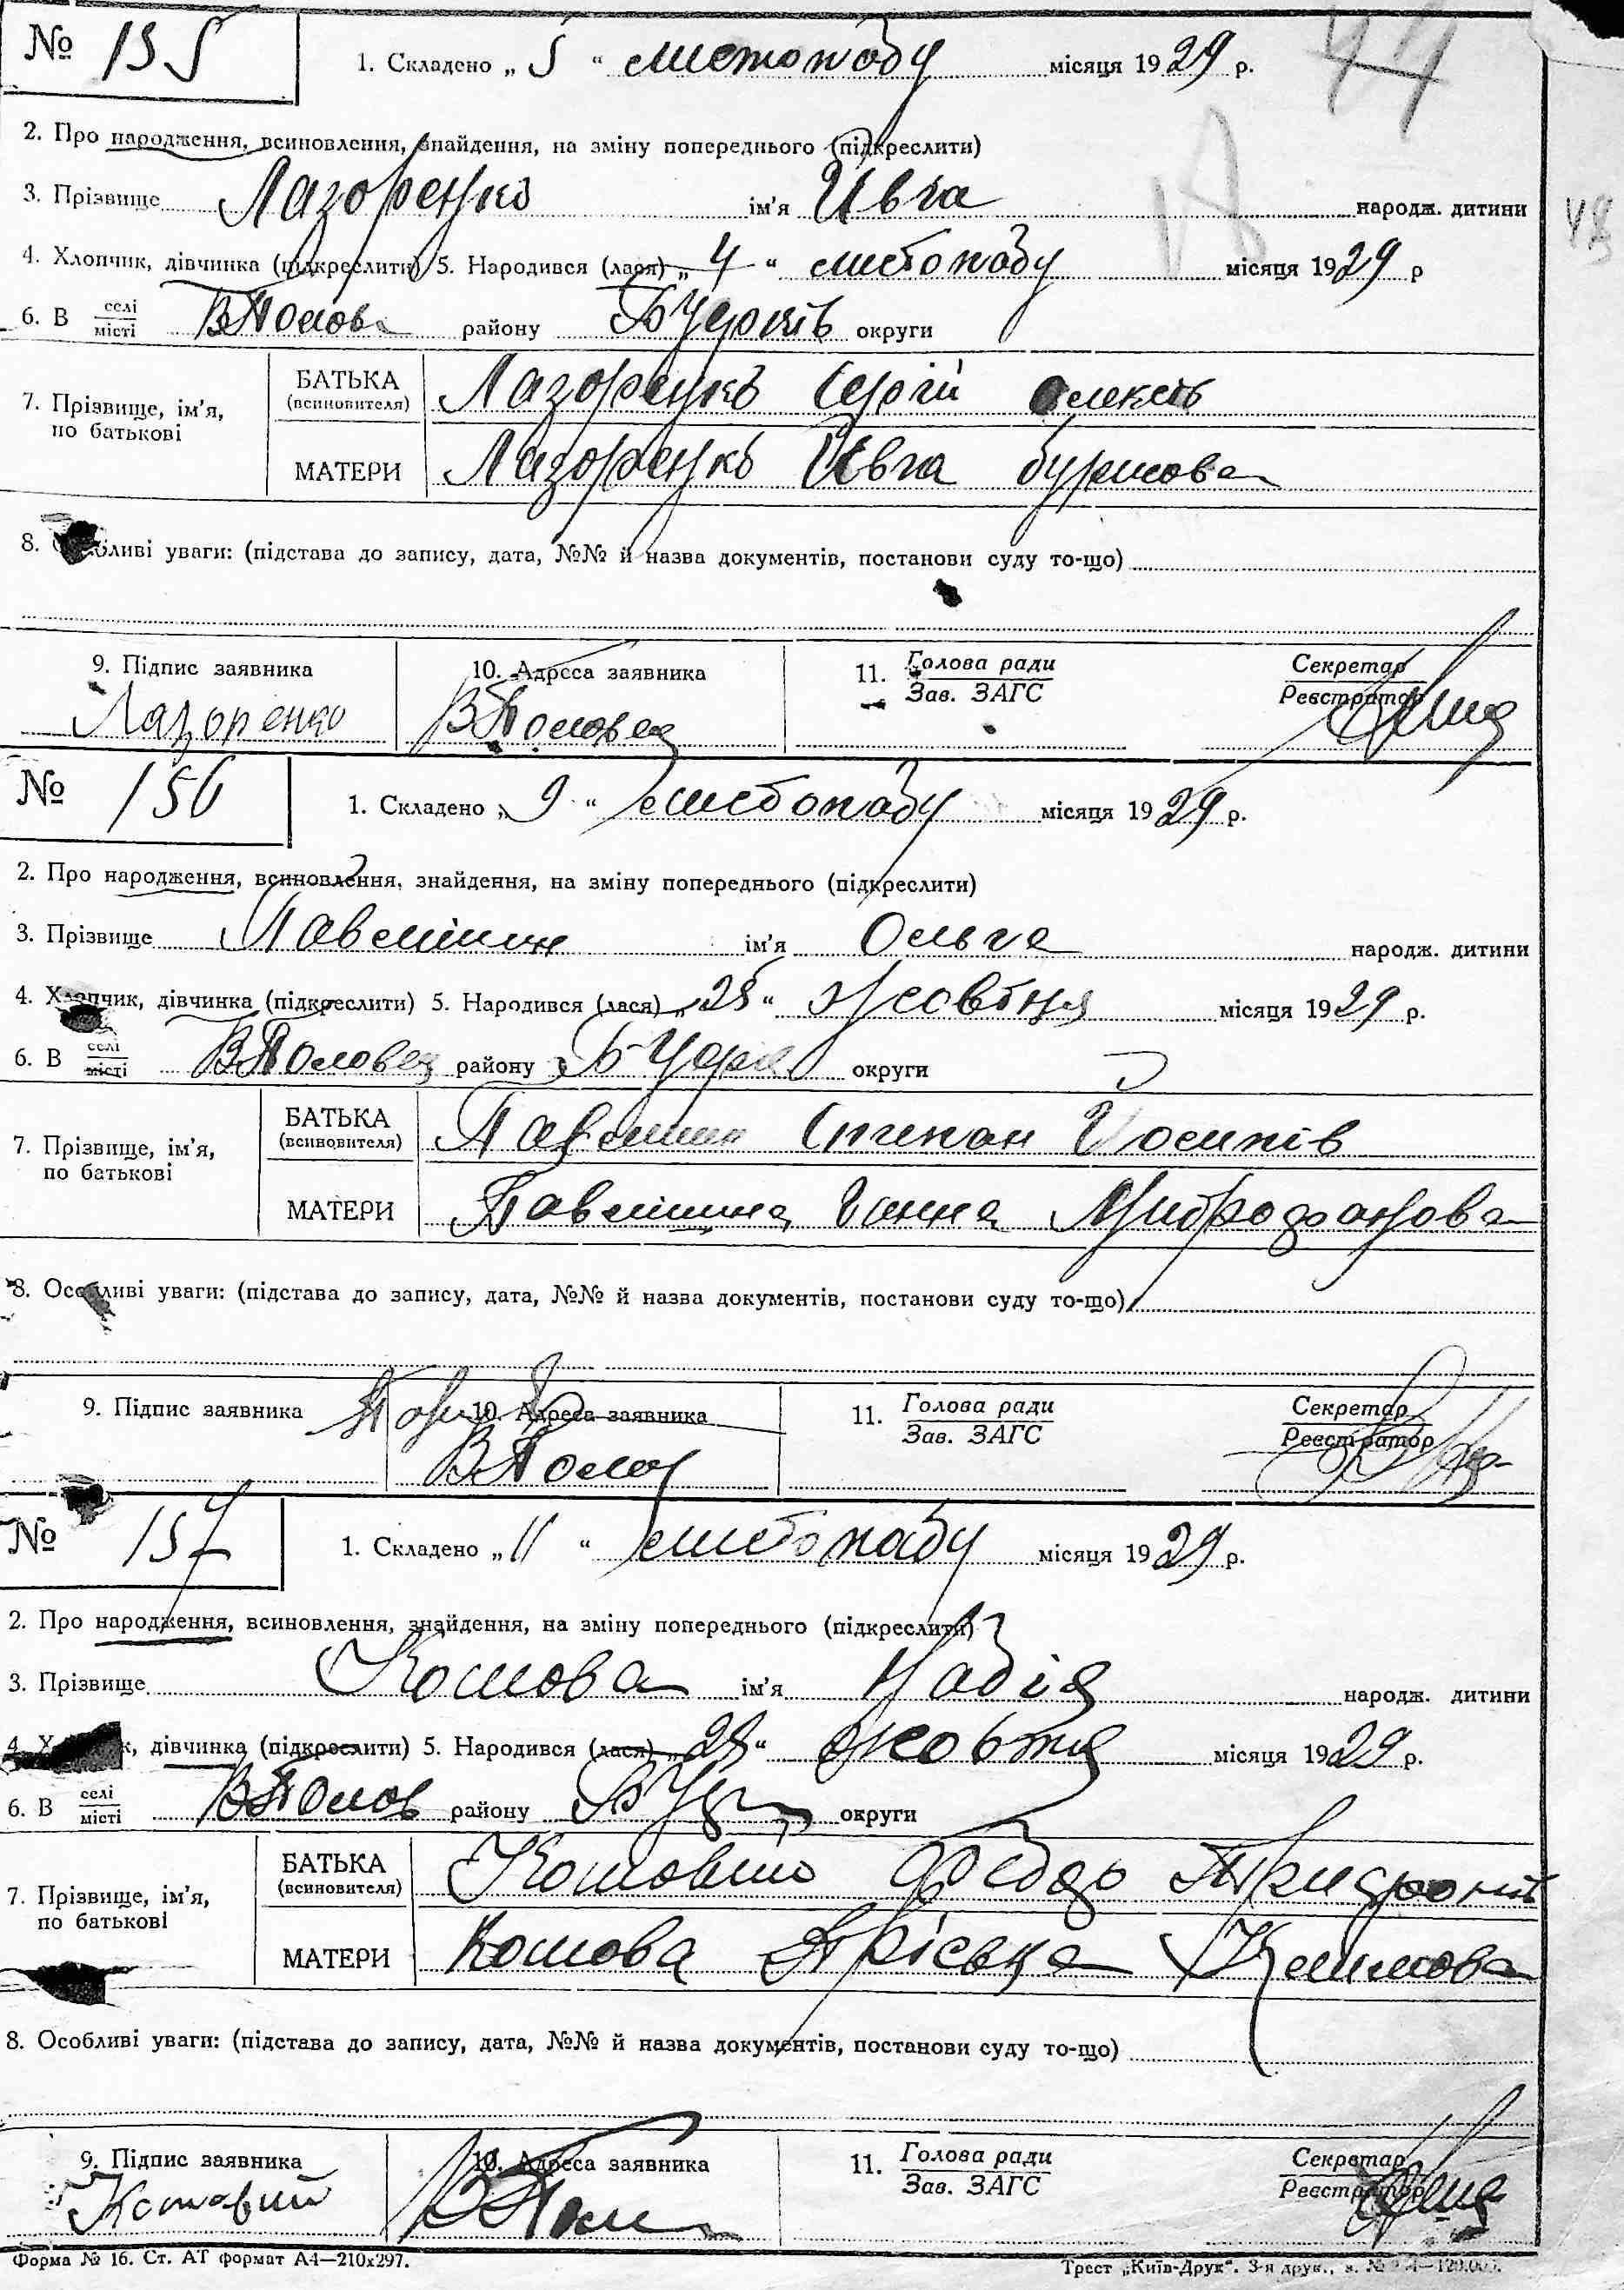 № 155
1. Складено „ 5 “ листопаду місяця 1929 р.
44
2. Про народження, всиновлення, знайдення, на зміну попереднього (підкреслити)
3. Прізвище Лазоренко ім’я Ивга народж. дитини
4. Хлопчик, дівчинка (підкреслити) 5. Народився (лася) „ 4 “ листопаду місяця 1929 р
6. В селі/місті В Полов району Б Церків округи
7. Прізвище, ім’я, по батькові
БАТЬКА (всиновителя) Лазоренко Сергій Олексів
МАТЕРИ Лазоренко Ивга
8. Особливі уваги: (підстава до запису, дата, №№ й назва документів, постанови суду то-що)
9. Підпис заявника 10. Адреса заявника 11. Голова ради/Зав. ЗАГС Секретар/Реєстратор
Лазоренко В Половец
№ 156
1. Складено „ 9 “ листопаду місяця 1929 р.
2. Про народження, всиновлення, знайдення, на зміну попереднього (підкреслити)
3. Прізвище ім’я Ольга народж. дитини
4. Хлопчик, дівчинка (підкреслити) 5. Народився (лася) „ 28 “ Жовтня місяця 1929 р.
6. В селі/місті В Половец району Б Церк округи
7. Прізвище, ім’я, по батькові
БАТЬКА (всиновителя) Степан Йосипів
МАТЕРИ Павлишина Ганна Митрофанова
8. Особливі уваги: (підстава до запису, дата, №№ й назва документів, постанови суду то-що)
9. Підпис заявника 10. Адреса заявника 11. Голова ради/Зав. ЗАГС Секретар/Реєстратор
В Полов
№ 157
1. Складено „ 11 “ листопаду місяця 1929 р.
2. Про народження, всиновлення, знайдення, на зміну попереднього (підкреслити)
3. Прізвище Котова ім’я Надія народж. дитини
4. Хлопчик, дівчинка (підкреслити) 5. Народився (лася) „ 28 “ жовтня місяця 1929 р.
6. В селі/місті В Полов району Б Цер округи
7. Прізвище, ім’я, по батькові
БАТЬКА (всиновителя) Федор
МАТЕРИ Котова Пріська Климова
8. Особливі уваги: (підстава до запису, дата, №№ й назва документів, постанови суду то-що)
9. Підпис заявника 10. Адреса заявника 11. Голова ради/Зав. ЗАГС Секретар/Реєстратор
Котовий В Пол
Форма № 16. Ст. АТ формат А4—210х297. Трест „Київ-Друк“. 3-я друк., з. №